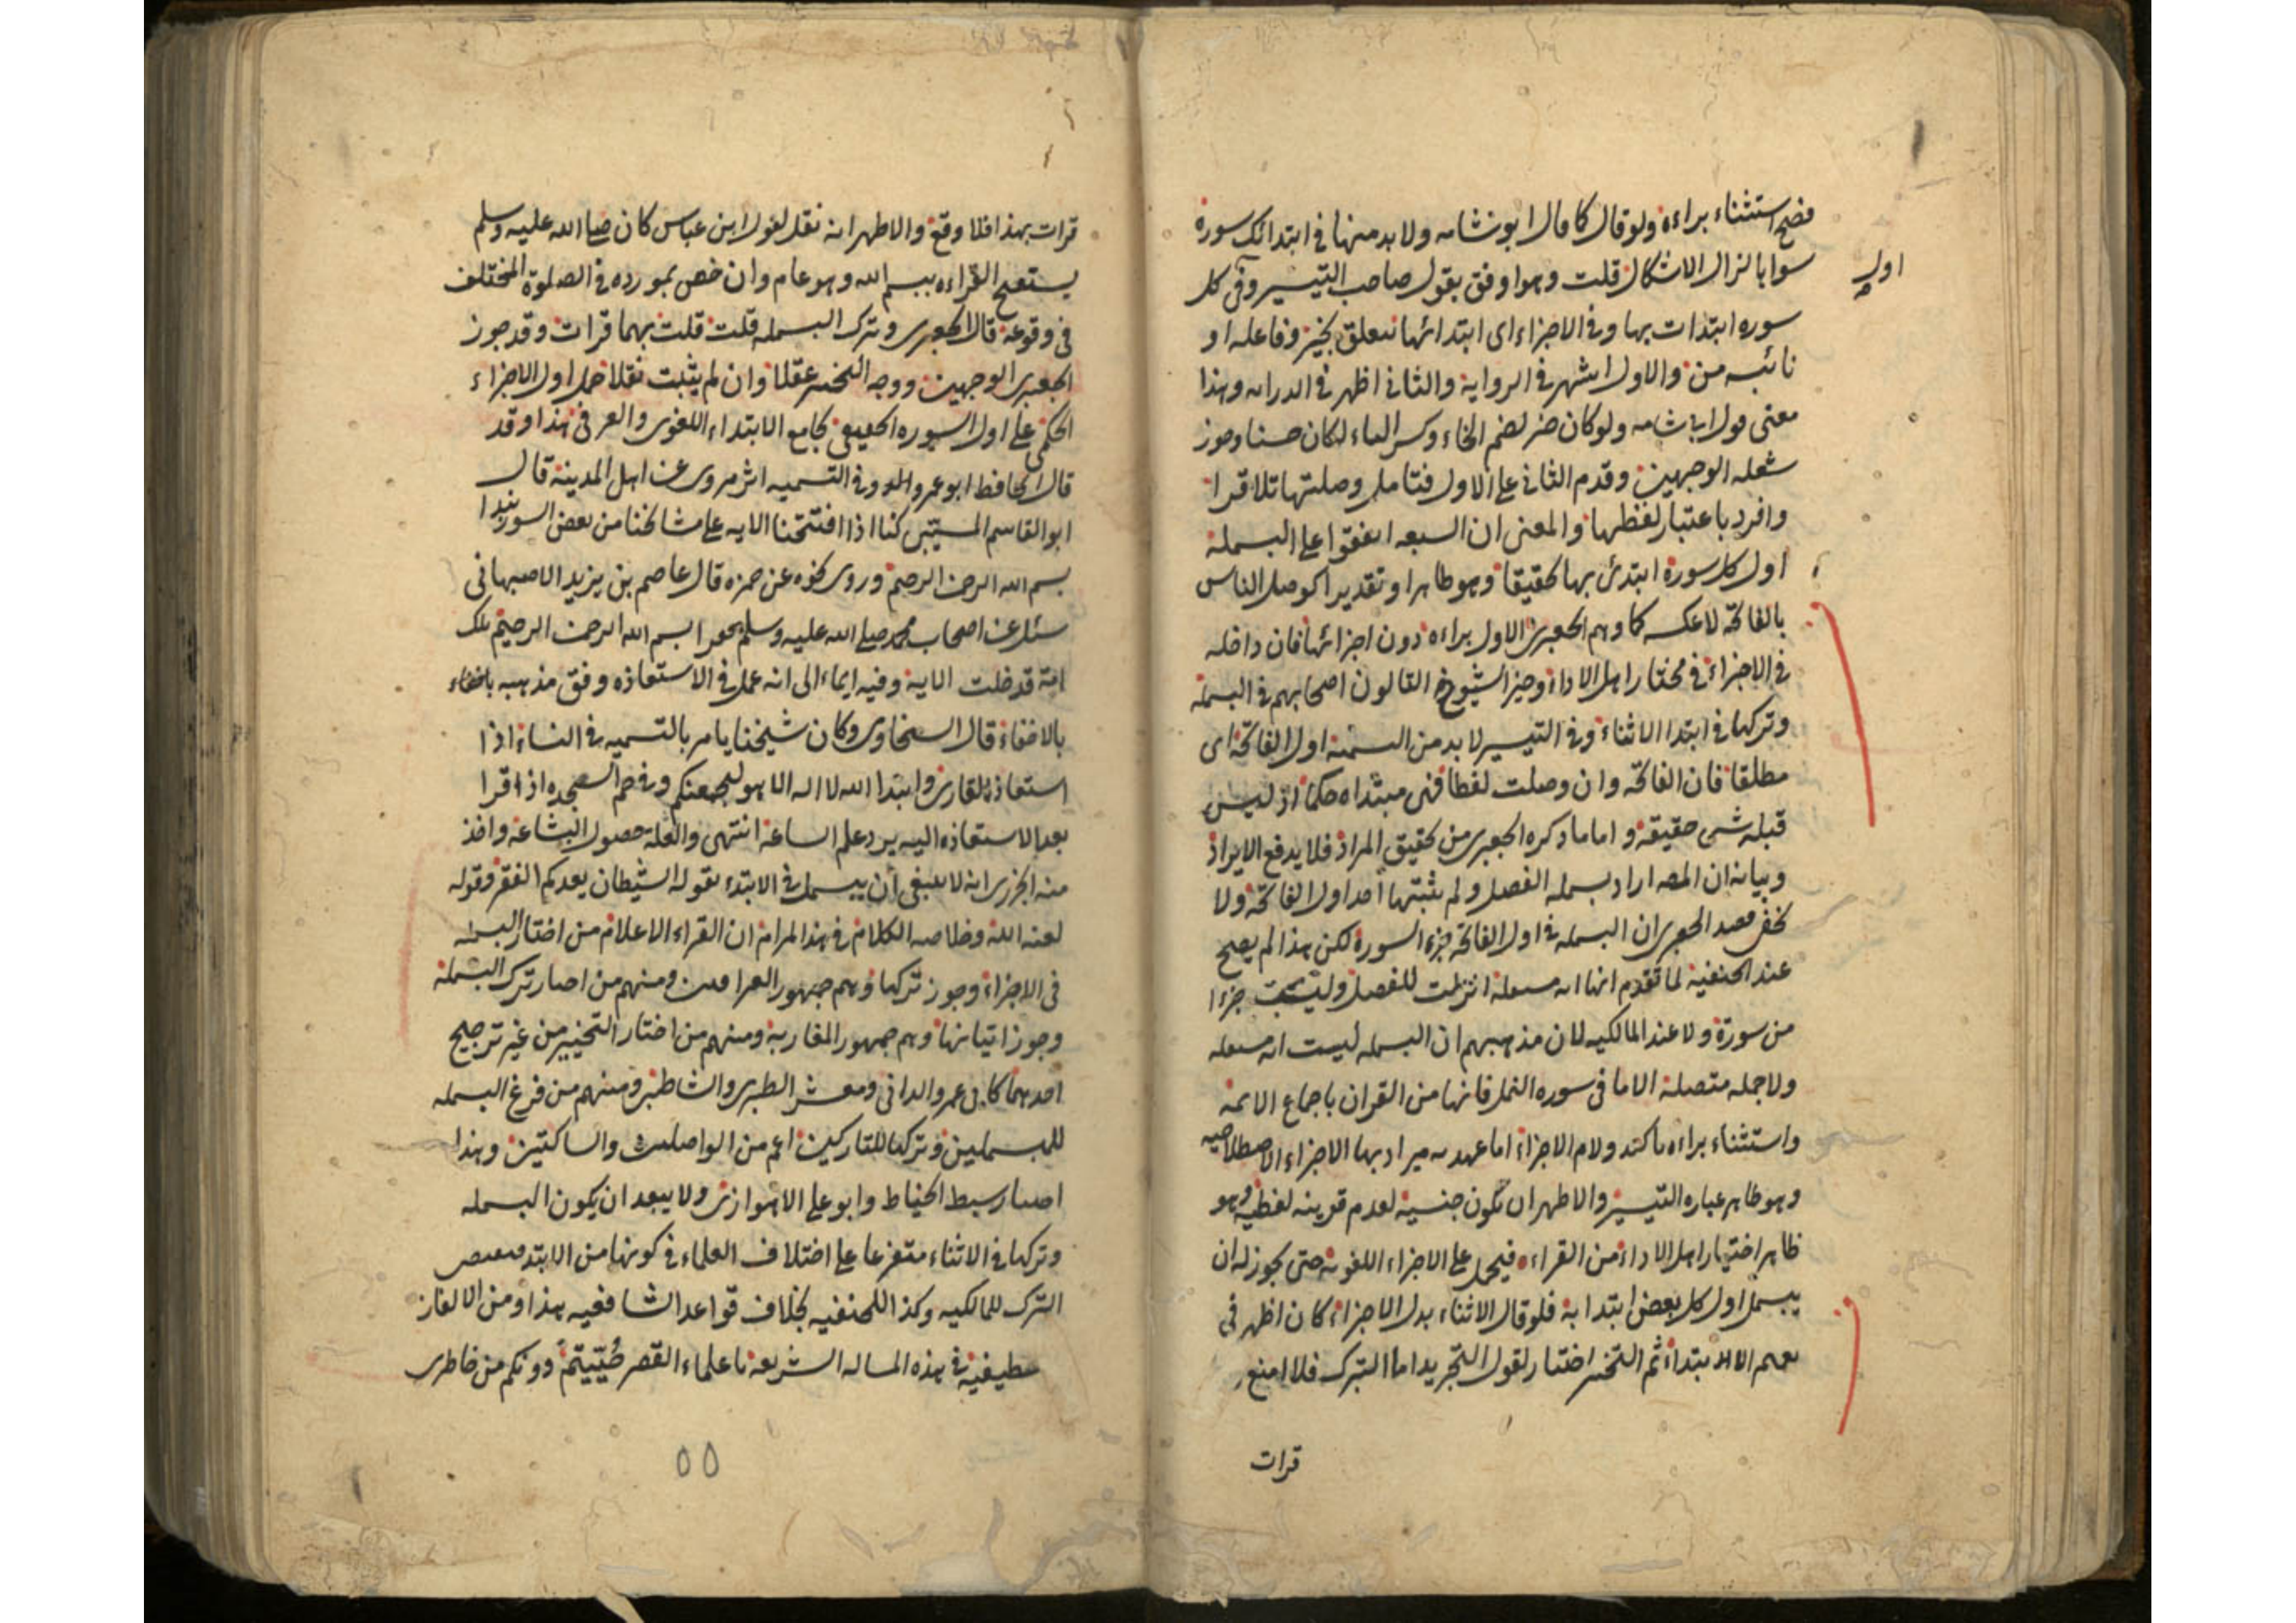 فصح استثناء براءة ولو قال كما قال ابو شامه ولا بد منها في ابتدائك سورة
اول
سواها لزال الاشكال قلت وهو اوفق بقول صاحب التيسير وفى كل
سوره ابتدات بها وفي الاجزاء اى ابتدائها تتعلق بخير وفاعله او
نائبه من والاول اشهر في الرواية والثاني اظهر في الدرايه وهذا
معنى قول ابي شامه ولو كان خير بضم الخاء وكسر الياء لكان حسنا وجوز
شعله الوجهين وقدم الثاني على الاول فتامل وصلتها تلا قرا
وافرد باعتبار لفظها والمعنى ان السبعه اتفقوا على البسملة
اول كل سورة ابتدئ بها تحقيقا وهو ظاهر او تقديرا كوصل الناس
بالفاتحة لا عكسه كما وهم الجعبرى الاول براءه دون اجزائها فان داخله
في الاجزاء في مختار اهل الاداء وخير الشيوخ القالون اصحابهم في البسملة
وتركها في ابتدا الاثناء وفي التيسير لا بد من التسمية اول الفاتحة اى
مطلقا فان الفاتحه وان وصلت لفظا فهى مبتداه حكما اذ ليس
قبله شى حقيقة واما ما ذكره الجعبرى من تحقيق المراد فلا يدفع الايراد
وبيانه ان المصه اراد بسمله الفصل ولم يثبتها احد اول الفاتحة ولا
يخفى قصد الجعبرى ان البسمله في اول الفاتحة جزء السورة لكن هذا لم يصح
عند الحنفية لما تقدم انها ايه مستقلة انزلت للفصل وليست جزءا
من سورة ولا عند المالكيه لان مذهبهم ان البسمله ليست ايه مستقله
ولا جمله متصلة الا ما فى سوره النمل فانها من القران باجماع الائمة
واستثناء براءه تاكيد ولام الاجزاء اما عهديه مراد بها الاجزاء الاصطلاحيه
وهو ظاهر عباره التيسير والاظهر ان تكون جنسية لعدم قرينه لفظيه وهو
ظاهر اختيار اهل الاداء من القراء فيحمل على الاجزاء اللغويه حتى يجوز له ان
يبسمل اول كل بعض ابتدا به فلو قال الاثناء بدل الاجزاء كان اظهر فى
تعميم الابتداء ثم التخيير اختيار لقول التجريد اما الترك فلا امنع
قرات
قرات بهذا فلا وقع والاظهر انه نقل لقول ابن عباس كان صلى الله عليه وسلم
يستفتح القراءه ببسم الله وهو عام وان خص بمورده في الصلوة المختلف
فى وقوعه قال الجعبرى وترك البسمله قلت قلت بهما قرات وقد جوز
الجعبرى الوجهين ووجه التخيير عقلا وان لم يثبت نقلا حمل اول الاجزاء
الحكمى على اول السوره الحقيقى بجامع الابتداء اللغوى والعرفى هذا وقد
قال الحافظ ابو عمرو الد وفي التسميه اثر مروى عن اهل المدينة قال
ابو القاسم المسيبى كنا اذا افتتحنا الايه على مشائخنا من بعض السور نبدا
بسم الله الرحمن الرحيم وروى نحوه عن حمزه قال عاصم بن يزيد الاصبهانى
سئل عن اصحاب محمد صلى الله عليه وسلم بسم الله الرحمن الرحيم تلك
امة قد خلت الاية وفيه ايماء الى انه عمل في الاستعاذه وفق مذهبه باخفاء
بالاخفاء قال السخاوى وكان شيخنا يامر بالتسميه في النساء اذا
استعاذ القارى وابتدا الله لا اله الا هو ليجمعنكم وفي حم السجده اذا قرا
بعد الاستعاذه اليه يرد علم الساعة انتهى والعله حصول البشاعة واخذ
منه الجزرى انه لا ينبغى ان يبسمل في الابتداء بقوله الشيطان يعدكم الفقر وقوله
لعنه الله وخلاصه الكلام في هذا المرام ان القراء الاعلام من اختار البسملة
فى الاجزاء وجوز تركها وهم جمهور العراقيين ومنهم من اختار ترك البسملة
وجوز اتيانها وهم جمهور المغاربة ومنهم من اختار التخيير من غير ترجيح
احدهما كابى عمرو الدانى ومعشر الطبرى والشاطبى ومنهم من فرغ البسمله
للمبسملين وتركها للتاركين اعم من الواصلين والساكتين وهذا
اختيار سبط الخياط وابو على الاهوازى ولا يبعد ان يكون البسمله
وتركها في الاثناء متفرعا على اختلاف العلماء في كونها من الابتداء
الترك للمالكيه وكذا للحنفيه بخلاف قواعد الشافعيه هذا ومن الالغاز
في هذه المساله الشريعه يا علماء القصر حييتم دونكم من خاطرى
٥٥